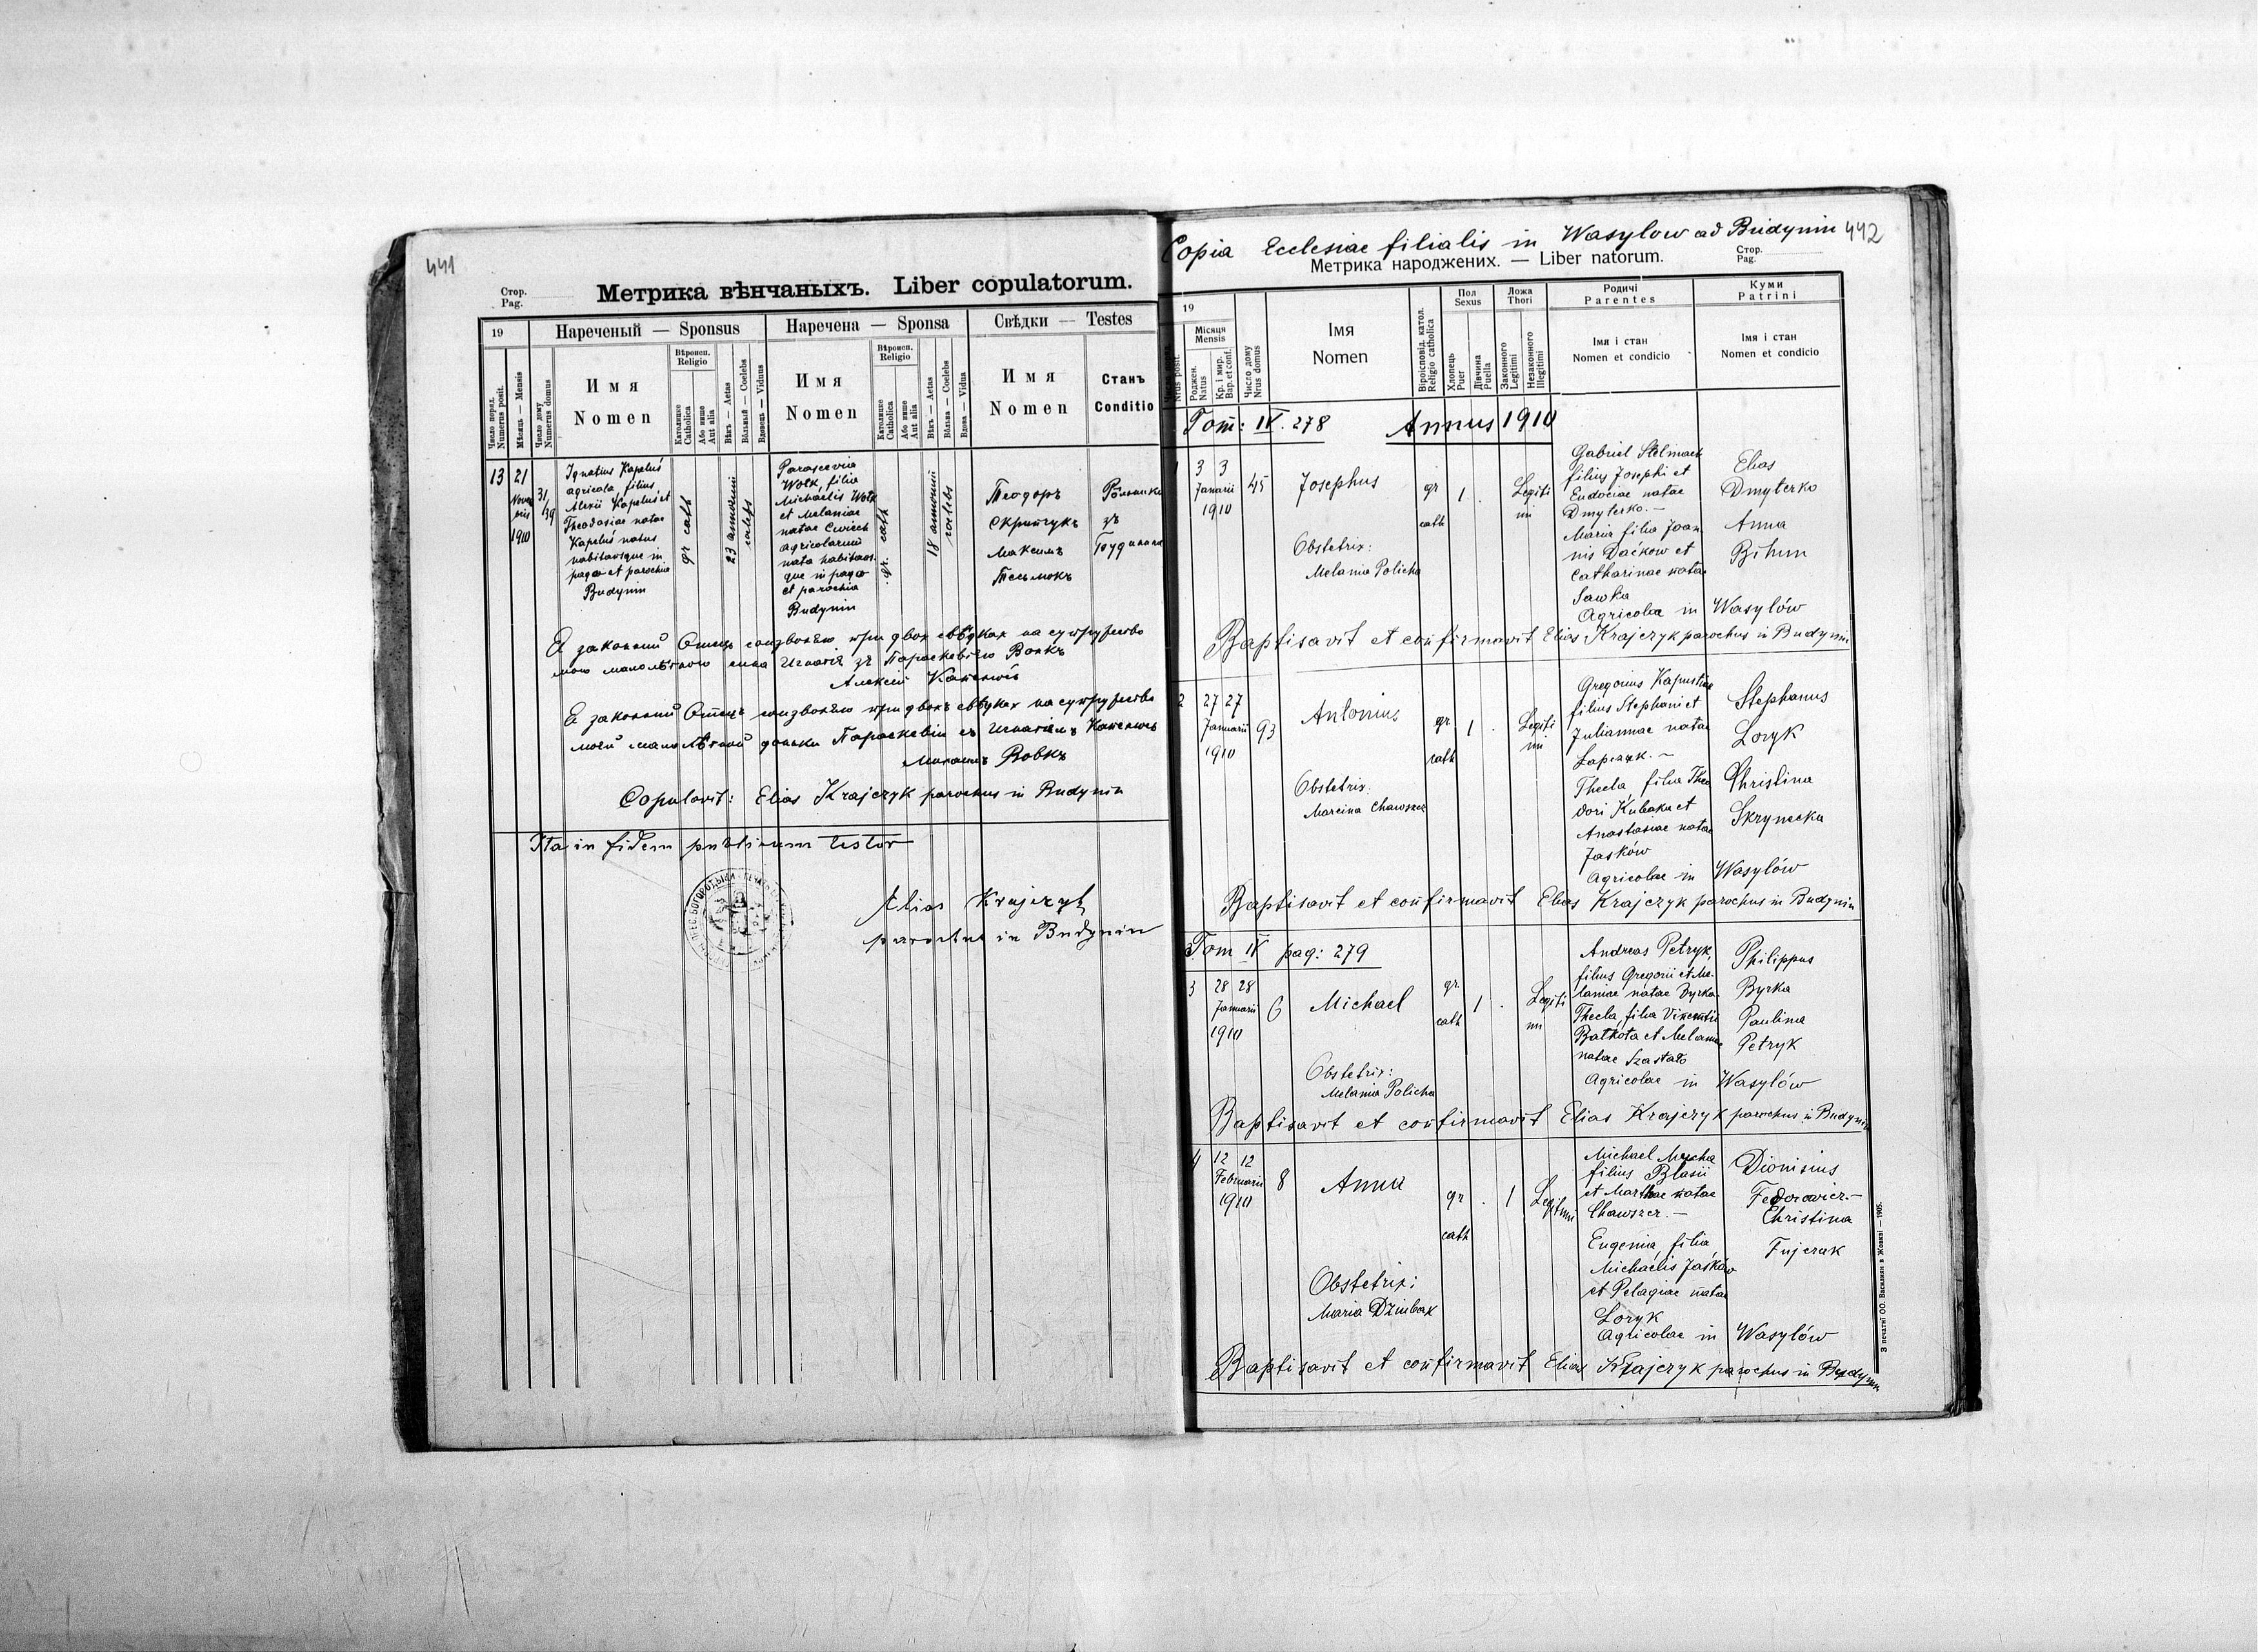 441
Стор.
Pag.
Метрика вѣнчаныхъ. Liber copulatorum.
19
Нареченый — Sponsus
Наречена — Sponsa
Свѣдки — Testes
Число поряд.
Numerus posit.
Мѣсяць — Mensis
Число дому
Numerus domus
Имя
Nomen
Вѣроисп.
Religio
Католицке
Catholica
Або инше
Aut alia
Вѣкъ — Aetas
Вôльный — Coelebs
Вдовець — Viduus
Имя
Nomen
Вѣроисп.
Religio
Католицке
Catholica
Або инше
Aut alia
Вѣкъ — Aetas
Вôльна — Coelebs
Вдова — Vidua
Имя
Nomen
Станъ
Conditio
13
21
Novembris
1910
31/39
Ignatius Kapeluś
agricola filius
Alexii Kapeluś et
Theodosiae natae
Kapeluś natus
habitansque in
pago et parochia
Budynin
gr. cath
23 annorum
coelebs
Parascevia
Wołk, filia
Michaelis Wołk
et Melaniae
natae
agricolarum
nata habitans-
que in pago
et parochia
Budynin
gr. cath
18 annorum
coelebs
Теодоръ
Скрипчукъ
Максимъ
Тесьмокъ
зъ
Я законний Отець соизволяю при двох свѣдках на супружество
мого малолѣтного сина Игнатія зъ Параскевіею Вовкъ
Алексій Капелюсь
Я законний Отець соизволяю при двохъ свѣдках на супружество
моей малолѣтной доньки Параскевіи съ Игнатіемъ Капелюсь
Михаилъ Вовкъ
Copulavit: Elias Krajczyk parochus in Budynin
Ita in fidem publicam testor
Elias Krajczyk
parochus in Budynin
Copia Ecclesiae filialis in Wasylow ad Budynin
442
Метрика народжених. — Liber natorum.
Стор.
Pag.
19
Nrus posit.
Місяця
Mensis
Роджен.
Natus
Кр. і мир.
Bap. et conf.
Число дому
Nrus domus
Імя
Nomen
Віроісповід. катол.
Religio catholica
Пол
Sexus
Хлопець
Puer
Дівчина
Puella
Ложа
Thori
Законного
Legitimi
Незаконного
Illegitimi
Родичі
Parentes
Імя і стан
Nomen et condicio
Куми
Patrini
Імя і стан
Nomen et condicio
Tom: IV. 278 Annus 1910
1
3 3
Januarii
1910
45
Josephus
gr
cath
1 .
Legiti
mi
Gabriel Stelmach
filius Josephi et
Eudociae natae
Dmyterko.—
Maria filia Joan
nis Daćkow et
Catharinae natae
Sawka
Agricolae in Wasylów
Elias
Dmyterko
Anna
Bihun
Obstetrix:
Melania Policha
Baptisavit et confirmavit Elias Krajczyk parochus in Budynin
2
27 27
Januarii
1910
93
Antonius
gr
cath
1 .
Legiti
mi
Gregorius Kapustiak
filius Stephani et
Juliannae natae
Łapczuk.—
Thecla, filia Theo
dori Kubaka et
Anastasiae natae
Jasków
Agricolae in Wasylów
Stephanus
Loryk
Christina
Skrynecka
Obstetrix:
Marcina Chawszcz
Baptisavit et confirmavit Elias Krajczyk parochus in Budynin
Tom IV pag: 279
3
28 28
Januarii
1910
6
Michael
gr
cath
1 .
Legiti
mi
Andreas Petryk,
filius Gregorii et Me-
laniae natae Byrka.
Thecla, filia Vincentii
Bałkota et Melaniae
natae Szastało
Agricolae in Wasylów
Philippus
Byrka
Paulina
Petryk
Obstetrix:
Melania Policha
Baptisavit et confirmavit Elias Krajczyk parochus in Budynin
4
12 12
Februarii
1910
8
Anna
gr
cath
. 1
Legitimi
Michael Mucha
filius Blasii
et Marthae natae
Chawszcz.—
Eugenia, filia
Michaelis Jasków
et Pelagiae natae
Loryk
Agricolae in Wasylów
Dionisius
Fedorowicz.—
Christina
Fujczak
Obstetrix:
Maria Dziubak
Baptisavit et confirmavit Elias Krajczyk parochus in Budynin
З печатні ОО. Василиян в Жовкві — 1905.